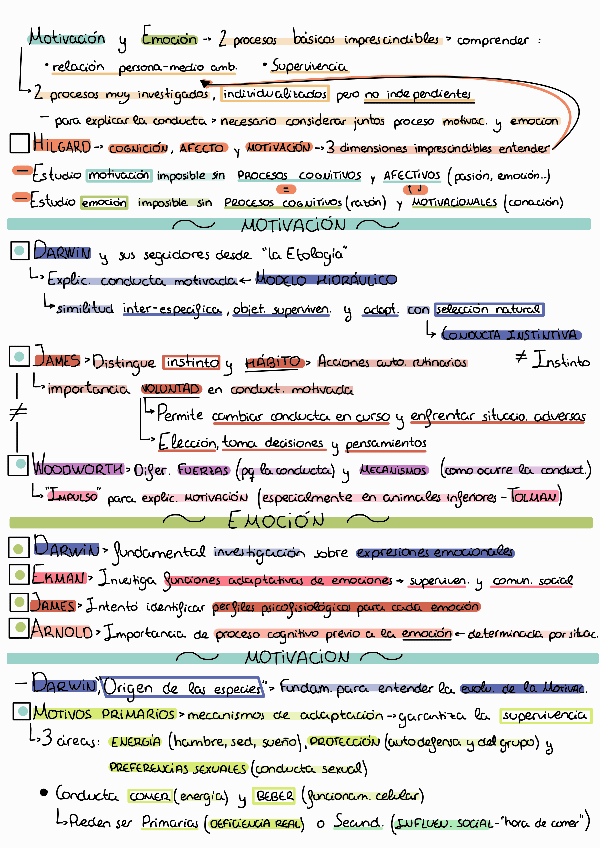 Motivación y Emoción → 2 procesos básicos imprescindibles > comprender :
• relación persona-medio amb. • Supervivencia
↳ 2 procesos muy investigados, individualizados pero no independientes
— para explicar la conducta > necesario considerar juntos proceso motivac. y emocion
HILGARD → COGNICIÓN, AFECTO y MOTIVACIÓN → 3 dimensiones imprescindibles entender
— Estudio motivación imposible sin PROCESOS COGNITIVOS y AFECTIVOS (pasión, emoción..)
= ↑↓
— Estudio emoción imposible sin PROCESOS COGNITIVOS (razón) y MOTIVACIONALES (conación)
MOTIVACIÓN
DARWIN y sus seguidores desde "la Etología"
↳ Explic. conducta motivada ← MODELO HIDRÁULICO
↳ similitud inter-especifica, objet. superviven. y adapt. con selección natural
↳ CONDUCTA INSTINTIVA
≠ Instinto
JAMES > Distingue instinto y HÁBITO > Acciones auto. rutinarias
↳ importancia VOLUNTAD en conduct. motivada
≠
↳ Permite cambiar conducta en curso y enfrentar situacio. adversas
↳ Elección, toma decisiones y pensamientos
WOODWORTH > Difer. FUERZAS (pq la conducta) y MECANISMOS (como ocurre la conduct.)
↳ "IMPULSO" para explic. MOTIVACIÓN (especialmente en animales inferores - TOLMAN)
EMOCIÓN
DARWIN > fundamental investigación sobre expresiones emocionales
EKMAN > Investiga funciones adaptativas de emociones → superviven. y comun. social
JAMES > Intentó identificar perfiles psicofisiológicos para cada emoción
ARNOLD > Importancia de proceso cognitivo previo a la emoción ← determinada por situac.
MOTIVACION
— DARWIN, "Origen de las especies" > Fundam. para entender la evolu. de la MOTIVAC.
MOTIVOS PRIMARIOS > mecanismos de adaptación → garantiza la supervivencia
↳ 3 áreas: ENERGÍA (hambre, sed, sueño), PROTECCIÓN (autodefensa y del grupo) y
PREFERENCIAS SEXUALES (conducta sexual)
• Conducta COMER (energía) y BEBER (funcionam. celular)
↳ Pueden ser Primarias (DEFICIENCIA REAL) o Secund. (INFLUEN. SOCIAL - "hora de comer")